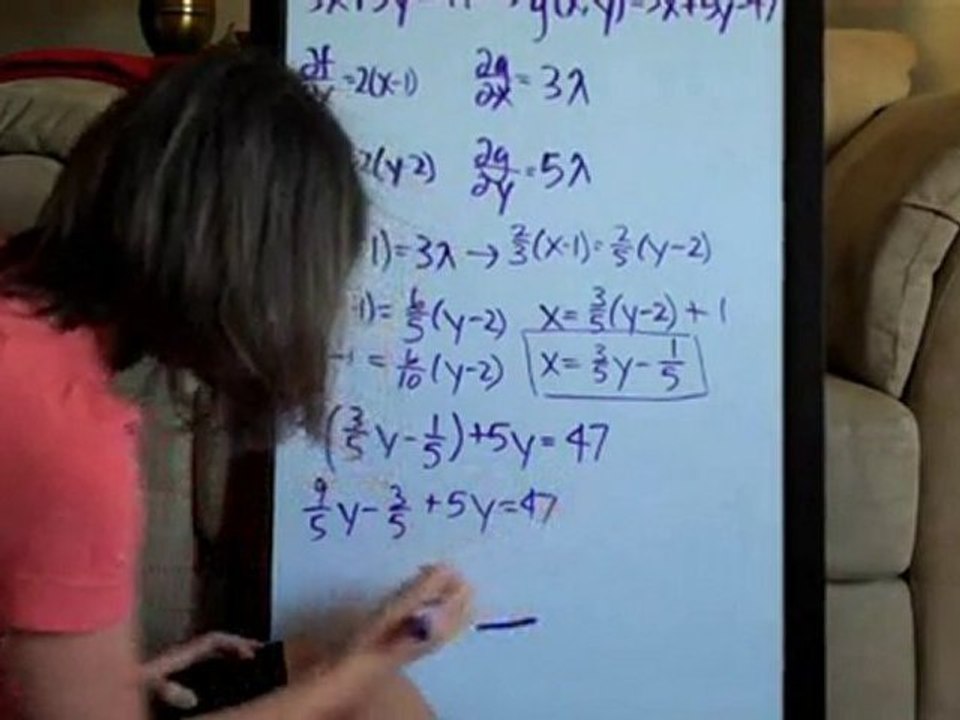 g(x,y)=3x+5y-47
∂f =2(x-1) ∂g/∂x = 3λ
2(y-2) ∂g/∂y = 5λ
1)=3λ → 2/3(x-1)= 2/5(y-2)
-1)= 6/5(y-2) x= 3/5(y-2)+1
-1 = 6/10(y-2) x= 3/5y - 1/5
(3/5y - 1/5)+5y=47
9/5y - 3/5 +5y=47